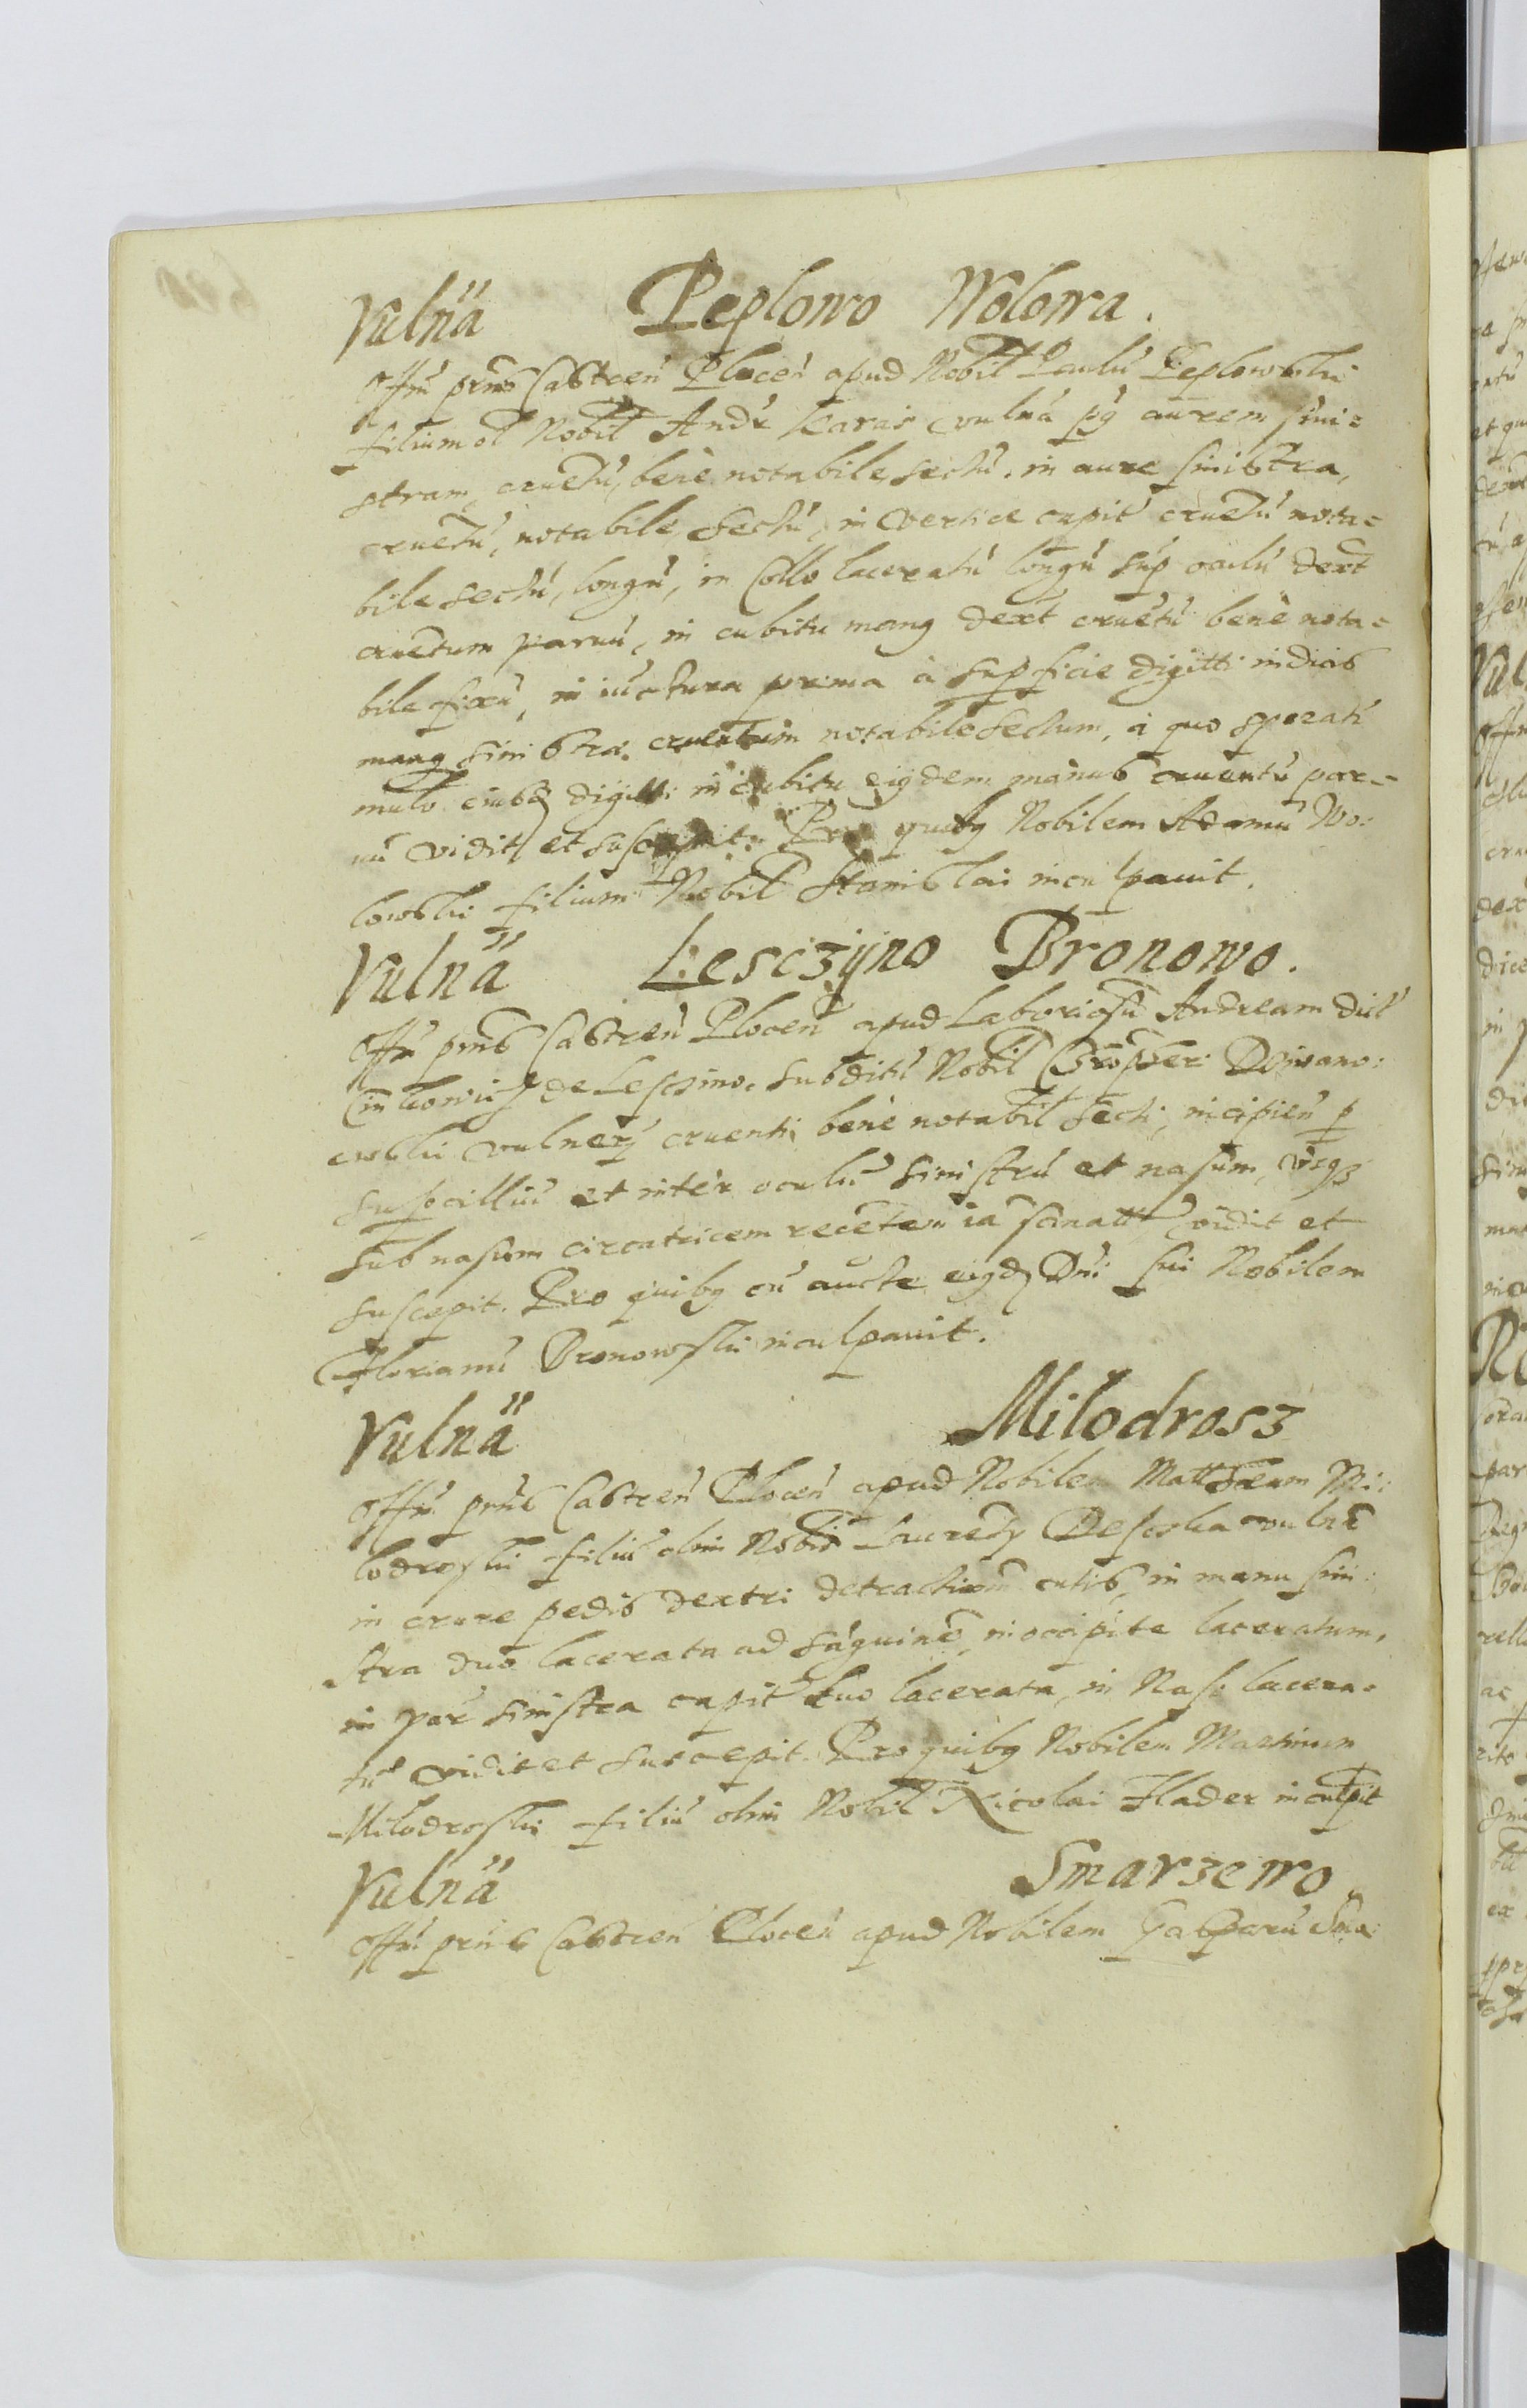 Vulna Peplowo Wolowa.
Offm prns Castren Plocen apud Nobil Paulu Peplowski
filium ol Nobil Andr Karas vulna pg aurem sini=
stram, cruetu, bene notabile sectu. in aure sinistra,
cruetu, notabile, sectu, in vertice capit cruetu nota=
bile sectu, longu, in Collo laceratu longu sup oculu dext
cruetum paruu, in cubitu mang dext cruetu bene nota=
bile fixu, in iuctura prima a supficie digitti indicis
mang sinistra. cruentum notabile sectum, a quo sperat
digitti in cubitu eigdem manus cruentu par=
uu vidit et suscepit. Pro quibg Nobilem Adamu Wo:
lowski filium Nobil Stanislai inculpauit.
Vulna Lesczyno Bronowo.
Offm prns Castren Plocen apud Laboriosu Andream dict
de Lesczino. subditu Nobil
vulnerz cruenti bene notabil secti, incipien p
supcilliu et inter oculu sinistru et nasum, vsq3
sub nasum circatricem recetem ia vidit et
suscepit. Pro quibg cu aucte eigd Dni sui Nobilem
Florianu Bronowski inculpauit.
Vulna Milodrosz
Offm prns Castren Plocen apud Nobilem Matthaeum Mi:
lodroski filiu olim Nobil Laurety vulna
in crure pedis dextri detractium cutis, in manu sini:
stra duo lacerata ad saguine, in occipite laceratum,
in par sinistra capit duo lacerata, in Naso lacera=
tu vidit et suscepit. Pro quibg Nobilem Martinum
Milodroski filiu olim Nobil Nicolai Hader inculpit
Vulna Smarzewo
Offm prns Castren Plocen apud Nobilem Gasparu Sma: